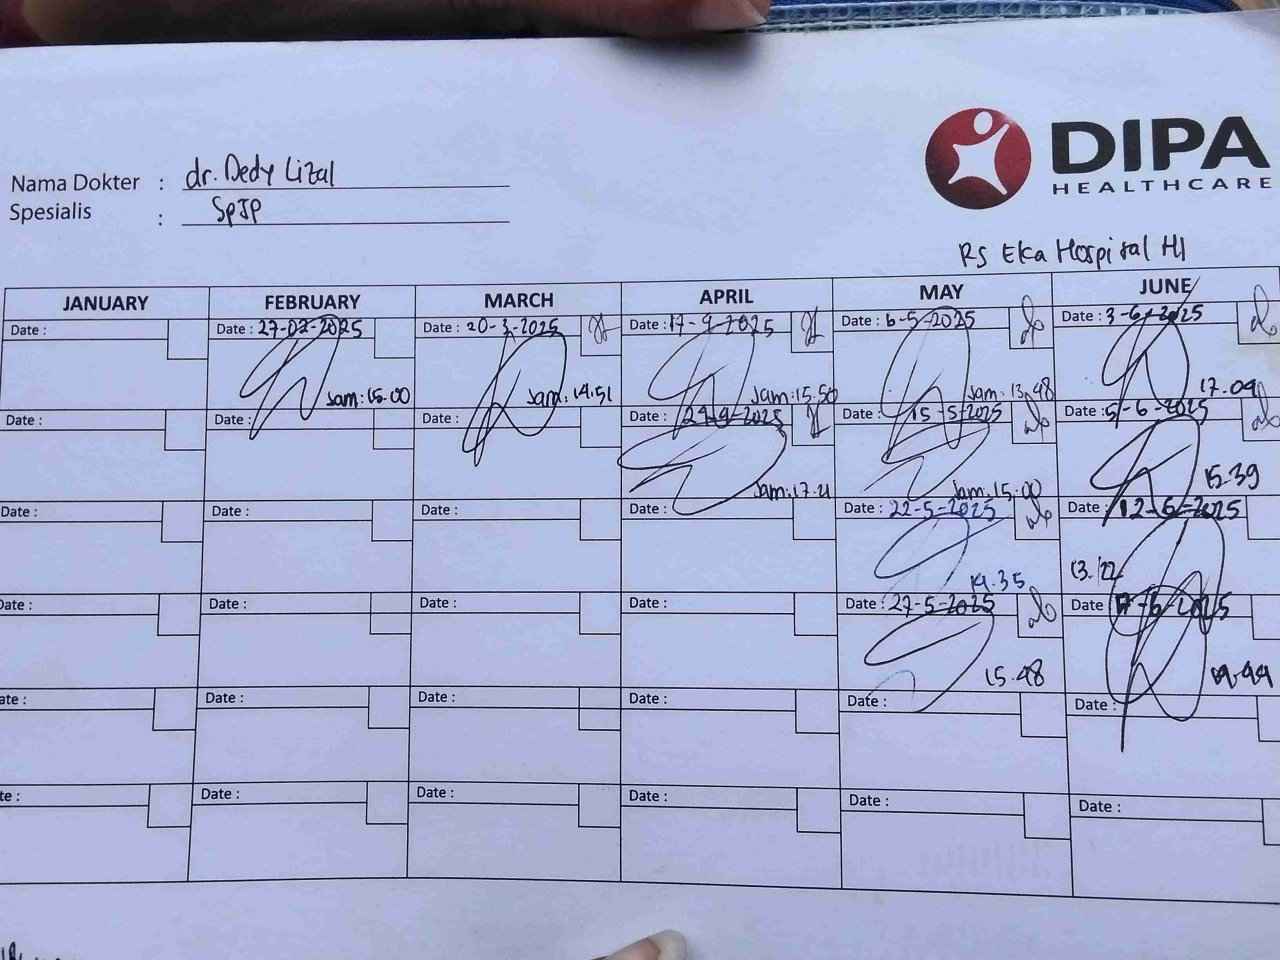 DIPA
HEALTHCARE
Nama Dokter : dr. Dedy Lizal
Spesialis : SpJP
RS Eka Hospital
JANUARY FEBRUARY MARCH APRIL MAY JUNE
Date : Date : 27-02-2025 Date : 20-3-2025 Date : 17-4-2025 Date : 6-5-2025 Date : 3-6-2025
Jam: 15.00 Jam: 14.51 Jam: 15.50 Jam: 13.48 17.04
Date : Date : Date : Date : 24-4-2025 Date : 15-5-2025 Date : 5-6-2025
Jam: 17.21 Jam: 15.00 15.39
Date : Date : Date : Date : Date : 22-5-2025 Date : 12-6-2025
14.35 13.22
Date : Date : Date : Date : Date : 27-5-2025 Date 17-6-2025
15.48
ate : Date : Date : Date : Date : Date :
te : Date : Date : Date : Date : Date :